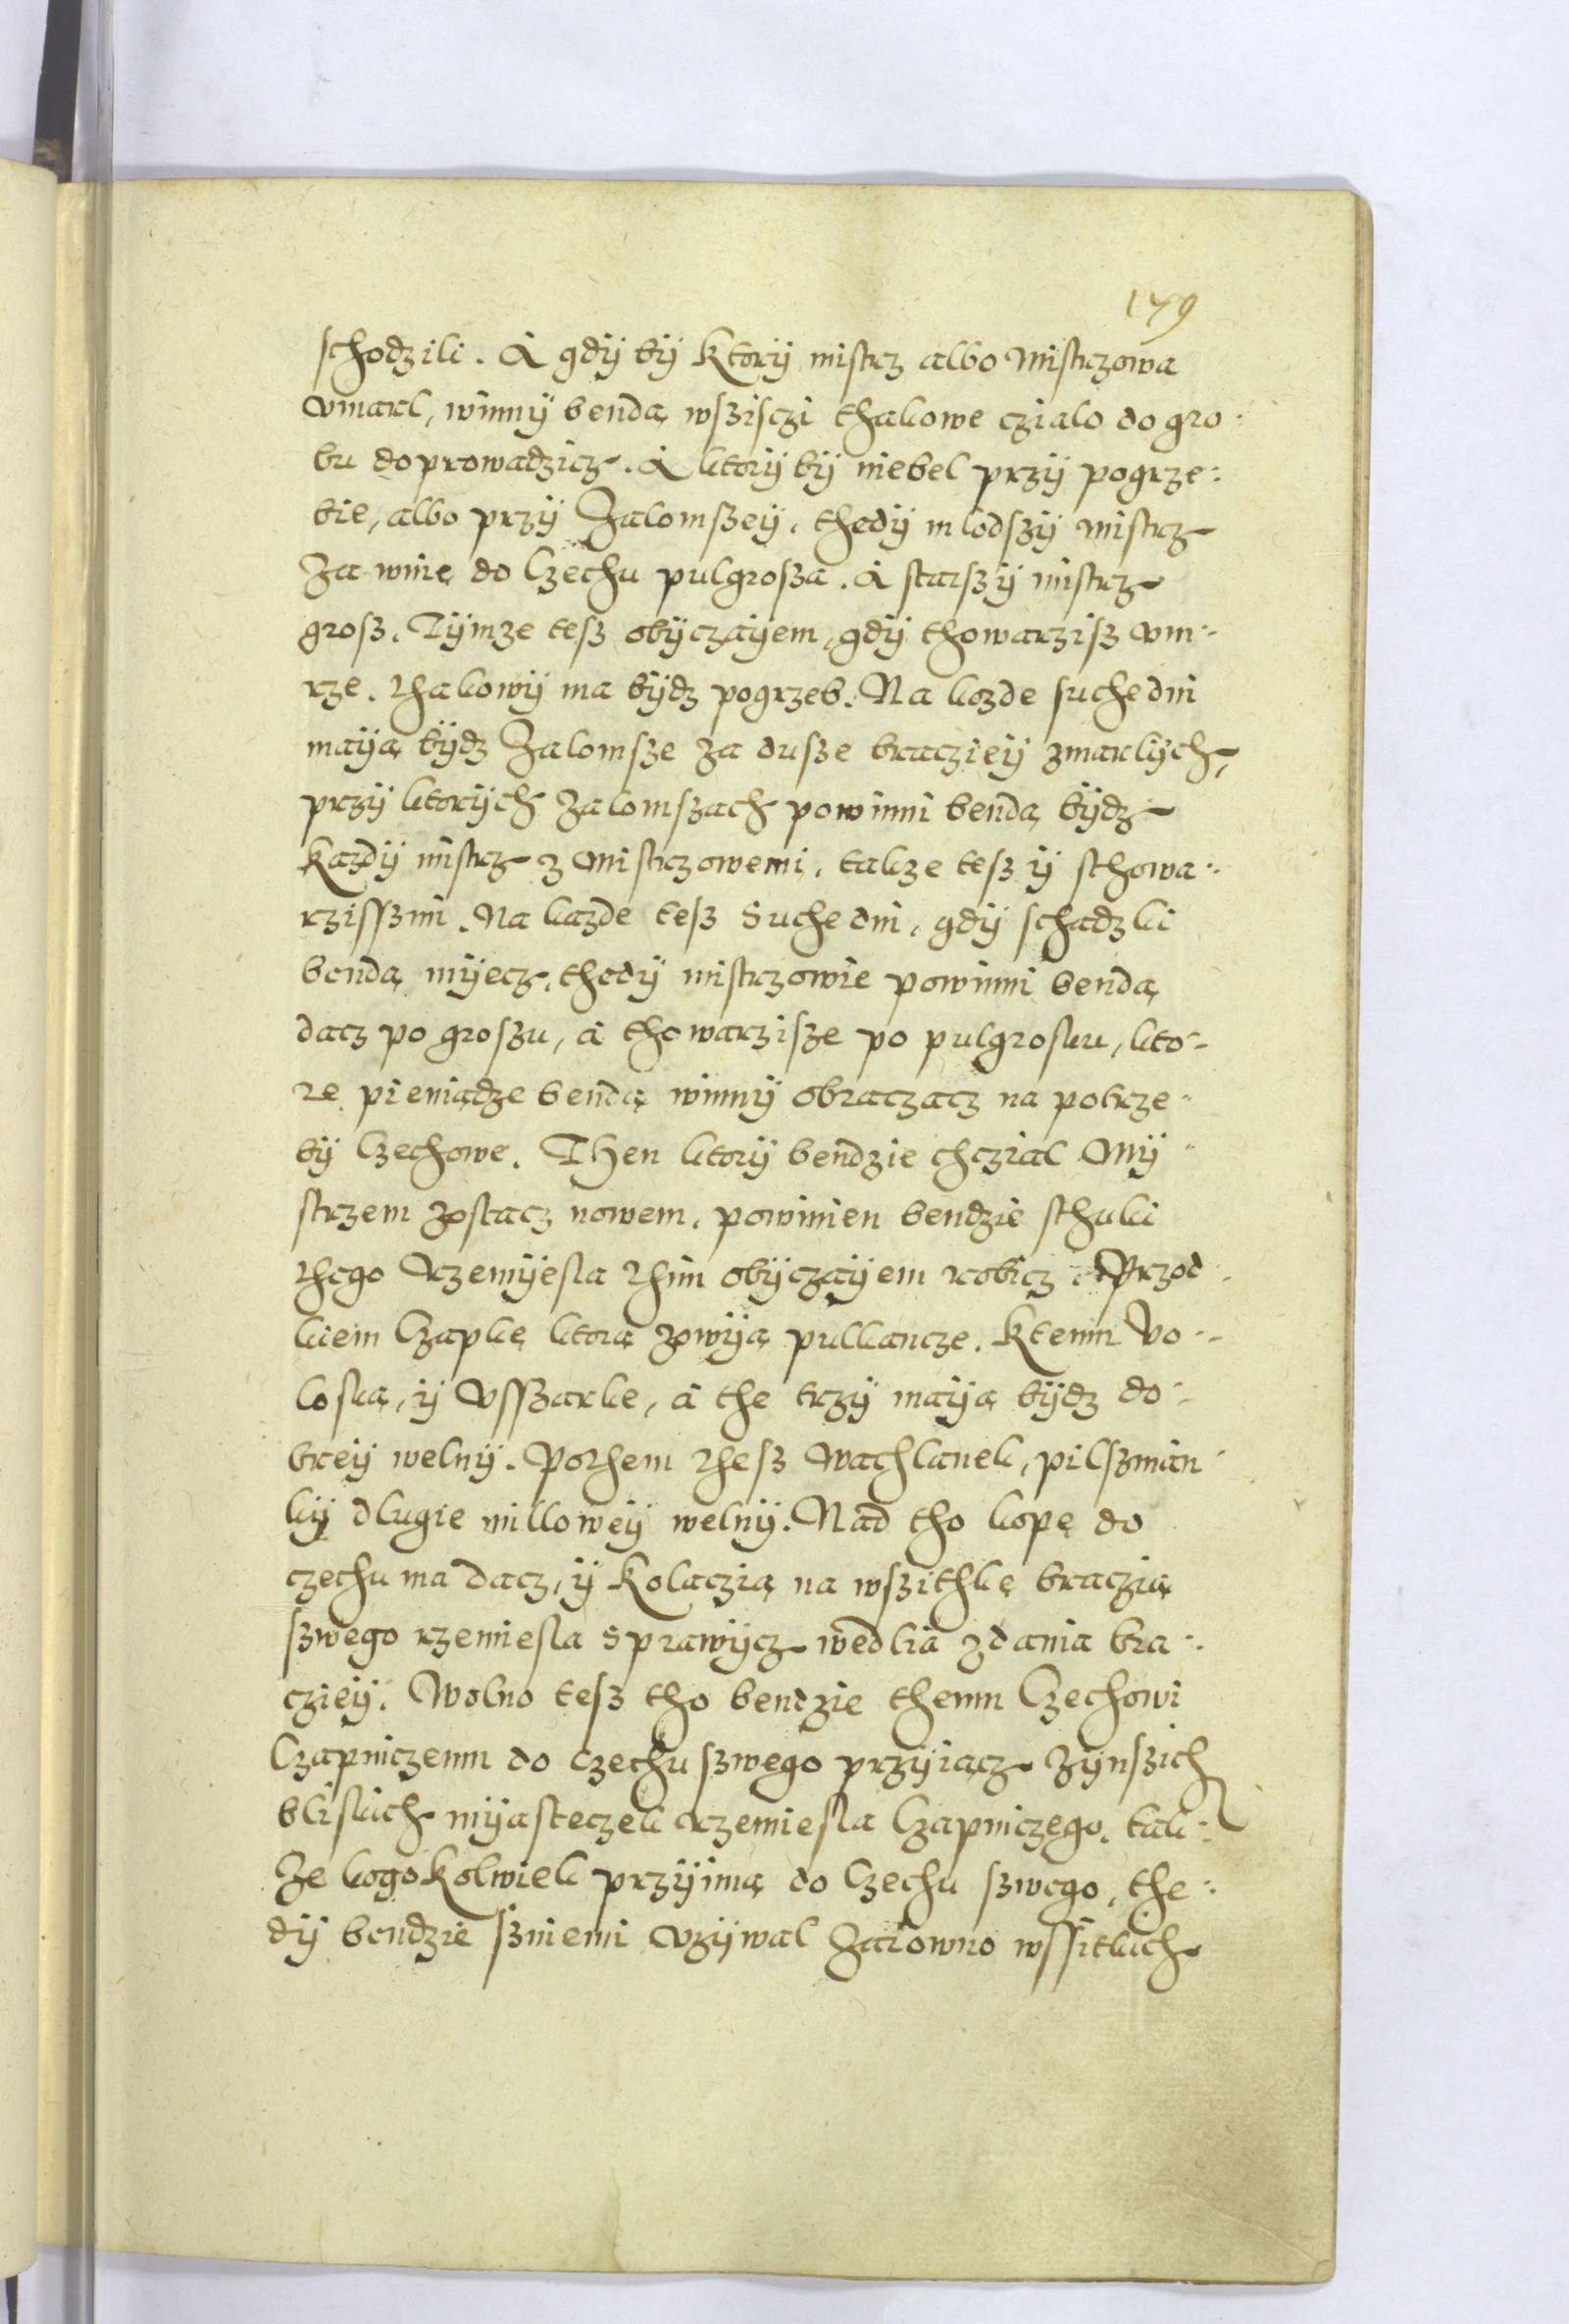 179
schodzili. A gdÿ bÿ Ktorÿ mistrz albo Mistrzowa
vmarl, winnÿ benda̧ wszisczi thakowe czialo do gro:
bu doprowadzicz. A ktorÿ bÿ niebel przÿ pogrze:
bie, albo przÿ Zalomszeÿ, thedÿ mlodszÿ mistrz
za winę do Czechu pulgrosza. A starszÿ mistrz
grosz. Tÿmze tesz obÿczaÿem, gdÿ thowarzisz vm:
rze. thakowÿ ma bÿdz pogrzeb. Na kozde suche dni
maÿą bÿdz Zalomsze za dusze braczieÿ zmarlÿch,
przÿ ktorÿch Zalomszach powinni bendą bÿdz
Kazdÿ mistrz z Mistrzowemi, takze tesz ÿ sthowa:
rziszszmi. Na kazde tesz Suche dni, gdÿ schadzki
bendą mÿecz, thedÿ mistrzowie powinni bendą
dacz po groszu, á thowarzisze po pulgrosku, kto-
re pieniądze bendą winnÿ obraczacz na potrze-
bÿ Czechowe. Then ktorÿ bendzie chczial Mÿ-
strzem zostacz nowem, powinien bendzie sthuki
thego Rzemÿesla thim obÿczaÿem robicz. Przod-
kiem Czapkę ktorą zowÿą pulkancze. Ktemu Vo-
loską, ÿ Vsszarke, á the trzÿ maÿą bÿdz do-
breÿ welnÿ. Pothem thesz Wachlanek, pilszmán-
kÿ dlugie milloweÿ welnÿ. Nad tho kopę do
czechu ma dacz, ÿ Kolaczią na wszithkę braczią
szwego rzemiesla Sprawÿcz wedlia zdania bra:
czieÿ. Wolno tesz tho bendzie themu Czechowi
Czapniczemu do Czechu szwego przÿiącz Zÿnszich
bliskich mÿasteczek rzemiesla Czapniczego, tak:
Ze kogo Kolwiek przÿimą do Czechu szwego, the:
dÿ bendzie szniemi vzÿwal Zarowno wssitkich